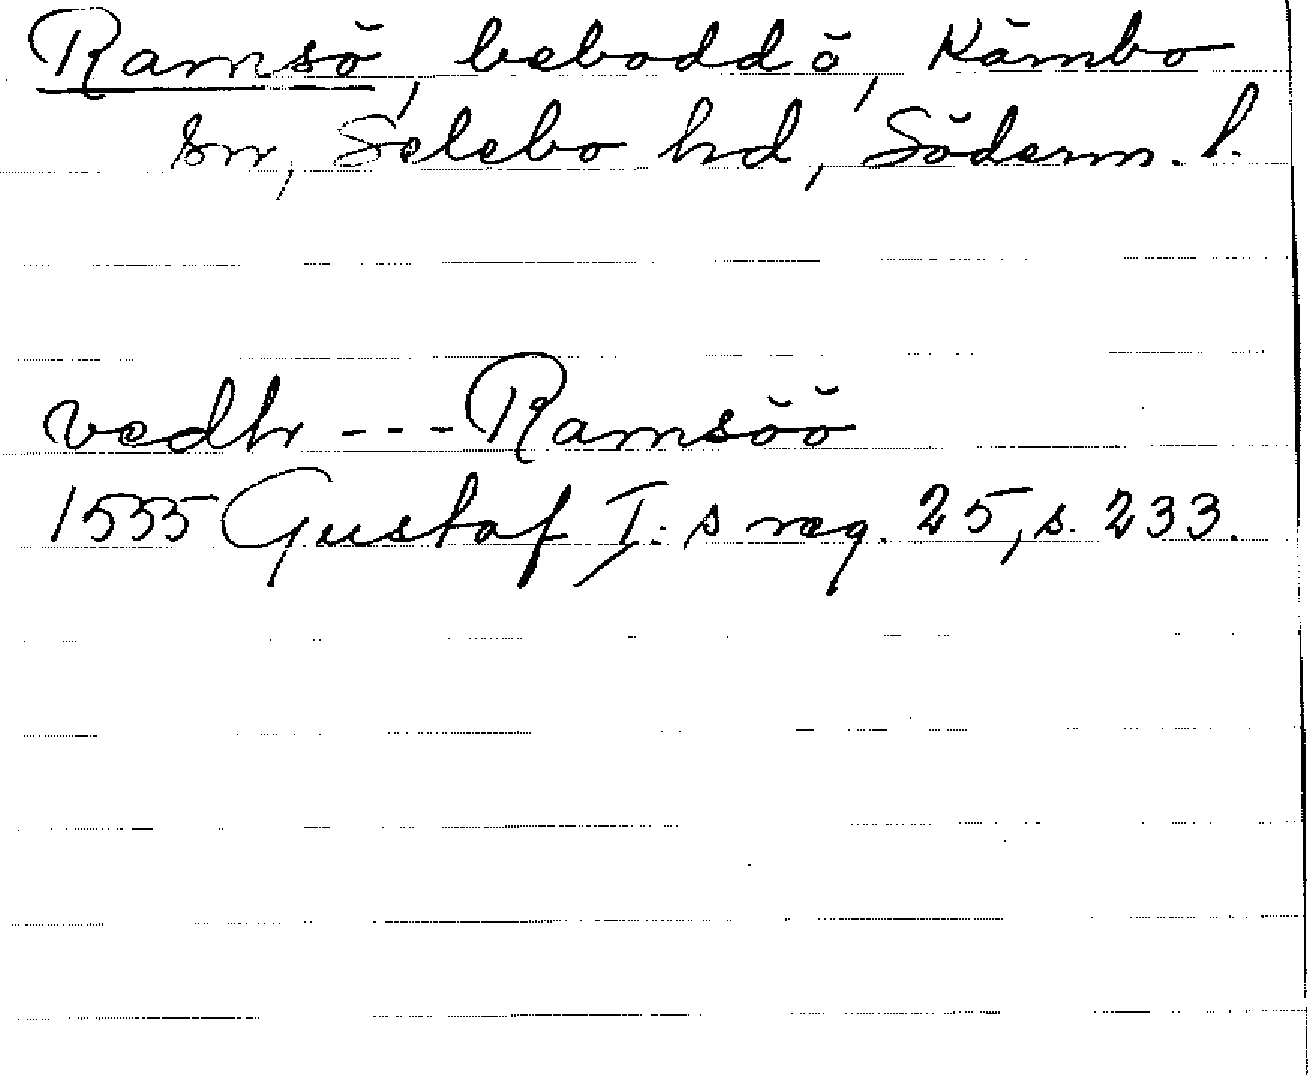 Ramsö, bebodd ö, Kärnbo
sn, Selebo hd, Söderm. l.
vedh --- Ramsöö
1555 Gustaf I:s reg. 25, s. 233.